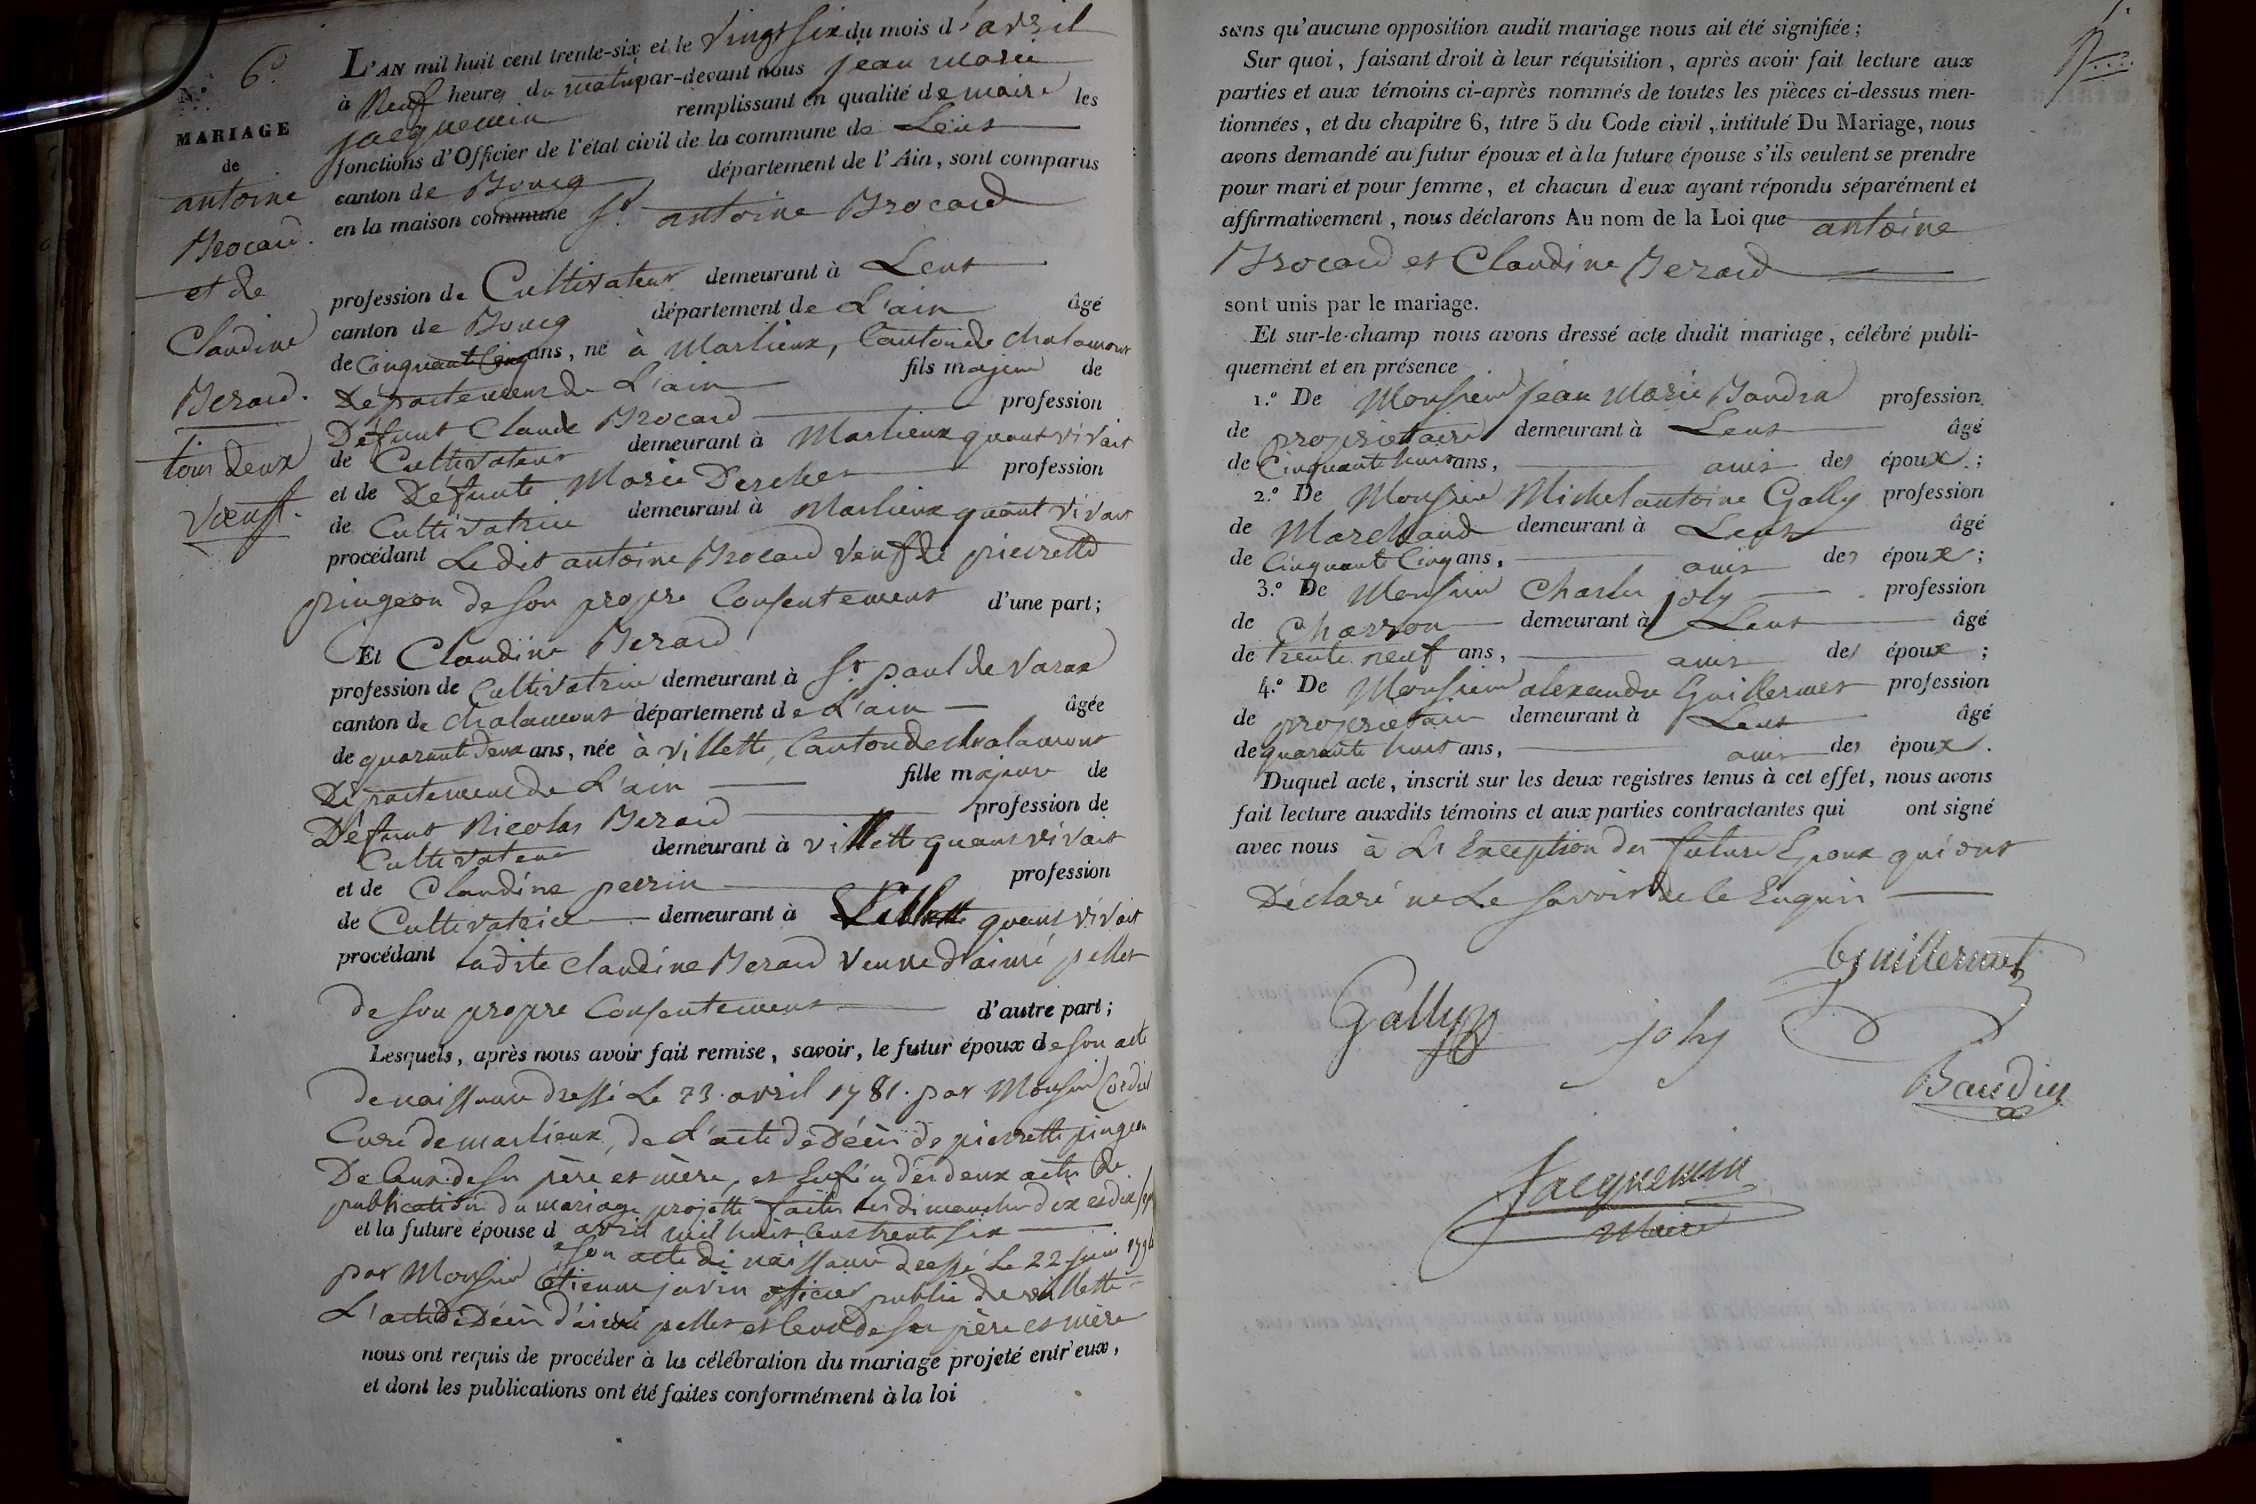 N.º 6º
MARIAGE
de
antoine
Brocard.
et de
Claudine
Berard.
tous deux
Vœuf.
L'AN mil huit cent trente-six et le Vingt Six du mois d'avril
à Neuf heures du matin par-devant nous jean marie
jacquemin remplissant en qualité de maire les
fonctions d'Officier de l'état civil de la commune de Lent
canton de Bourg département de l'Ain, sont comparus
en la maison commune Sr. antoine Brocard
profession de Cultivateur demeurant à Lent
canton de Bourg département de L'ain âgé
de Cinquante Cinq ans, né à Marlieux, Canton de chalamont
Département de L'ain fils majeur de
Défunt Claude Brocard profession
de Cultivateur demeurant à Marlieux quant vivait
et de Défunte Marie profession
de Cultivatrice demeurant à Marlieux quant vivait
procédant Ledit antoine Brocard Veuf de pierrette
pingeon de Son propre Consentement d'une part;
Et Claudine Berard
profession de Cultivatrice demeurant à St. paul de Varax
canton de chalamont département de L'ain âgée
de quarante deux ans, née à Villette, Canton de chalamont
Département de L'ain fille majeure de
Défunt Nicolas Berard profession de
Cultivateur demeurant à Villette quant vivait
et de Claudine perrin profession
de Cultivatrice demeurant à Villette quant vivait
procédant Ladite Claudine Berard Veuve d'aimé pellet
de Son propre Consentement d'autre part;
Lesquels, après nous avoir fait remise, savoir, le futur époux de Son acte
de naissance dressé Le 23 avril 1781. par Monsieur
Curé de marlieux, de L'acte de Décès de pierrette pingeon
De Ceux de Son père et mère, et Enfin des deux actes de
publication du mariage projetté faites les dimanches dix et dix Sept
et la future épouse d avril mil huit Cent trente Six
e Son acte de naissance dressé Le 22 juin
par Monsieur Etienne javin officier public de Villette
L'acte de Décès d'aimé pellet et Ceux de Son père et mère
nous ont requis de procéder à la célébration du mariage projeté entr'eux,
et dont les publications ont été faites conformément à la loi
sans qu'aucune opposition audit mariage nous ait été signifiée;
Sur quoi, faisant droit à leur réquisition, après avoir fait lecture aux
parties et aux témoins ci-après nommés de toutes les pièces ci-dessus men-
tionnées, et du chapitre 6, titre 5 du Code civil, intitulé Du Mariage, nous
avons demandé au futur époux et à la future épouse s'ils veulent se prendre
pour mari et pour femme, et chacun d'eux ayant répondu séparément et
affirmativement, nous déclarons Au nom de la Loi que antoine
Brocard et Claudine Berard
sont unis par le mariage.
Et sur-le-champ nous avons dressé acte dudit mariage, célébré publi-
quement et en présence
1.º De Monsieur jean Marie Baudin profession
de propriétaire demeurant à Lent âgé
de Cinquante huit ans, amis des époux;
2.º De Monsieur Michel antoine Gally profession
de Marchand demeurant à Lent âgé
de Cinquante Cinq ans, amis des époux;
3.º De Monsieur Charles joly profession
de Charron demeurant à Lent âgé
de trente neuf ans, amis des époux;
4.º De Monsieur alexandre Guillermet profession
de propriétaire demeurant à Lent âgé
de quarante huit ans, amis des époux.
Duquel acte, inscrit sur les deux registres tenus à cet effet, nous avons
fait lecture auxdits témoins et aux parties contractantes qui ont signé
avec nous à L'Exception des futurs Epoux qui ont
Déclaré ne Le Savoir de ce Enquis
Guillermet
Gally
joly
Baudin
Jacquemin
Maire